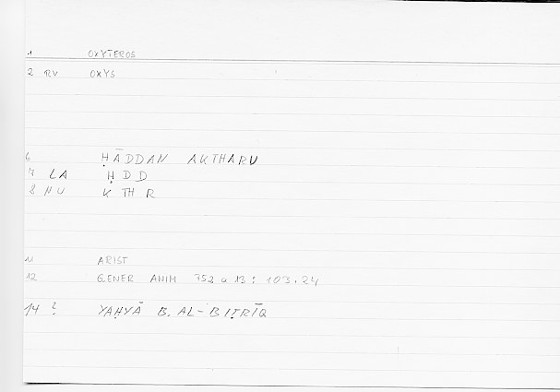 1 OXYTEROS
2 RV OXYS
6 ḤĀDDAN AKTHARU
7 LA ḤDD
8 NU KTHR
11 ARIST
12 GENER ANIM 752 a 13 : 103.24
14 ? YAḤYĀ B. AL-BIṬRĪQ